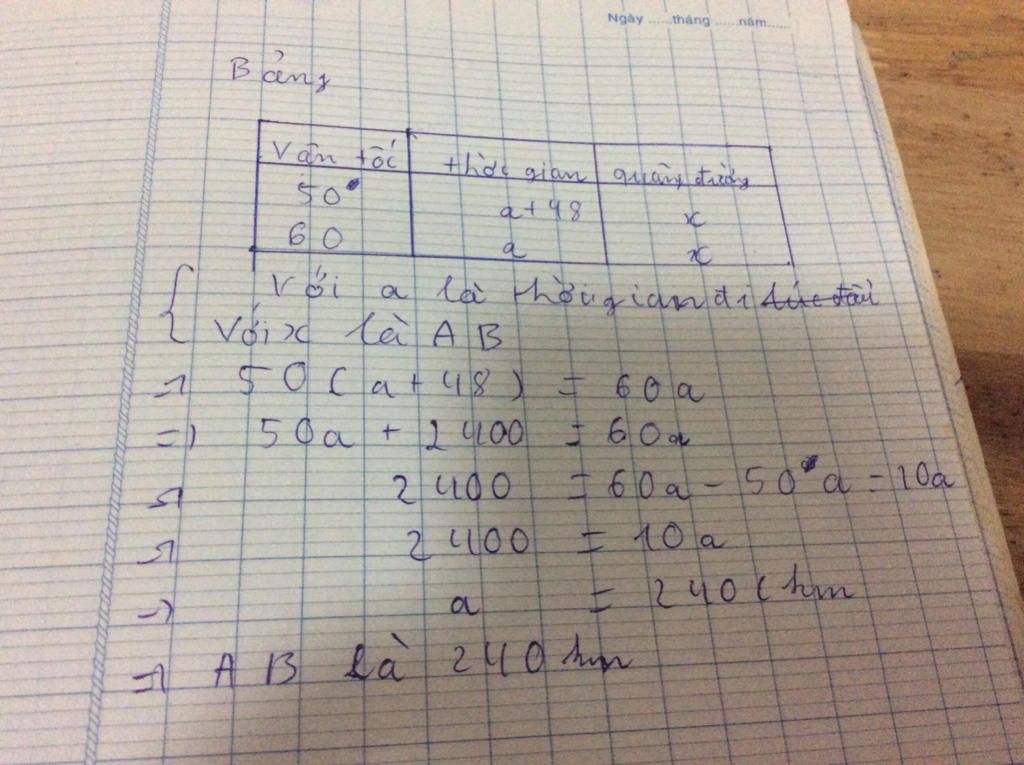 Ngày ......tháng ......năm......
Bảng
Vận tốc thời gian quãng đường
50 a+48 x
60 a x
Với a là thời gian đi lúc đầu
Với x là AB
=> 50(a+48) = 60a
=> 50a + 2400 = 60a
=> 2400 = 60a - 50a = 10a
=> 2400 = 10a
=> a = 240 (km
=> AB là 240 km